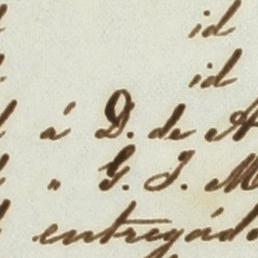 id
id
á D. de A
" G. J. M
entregado